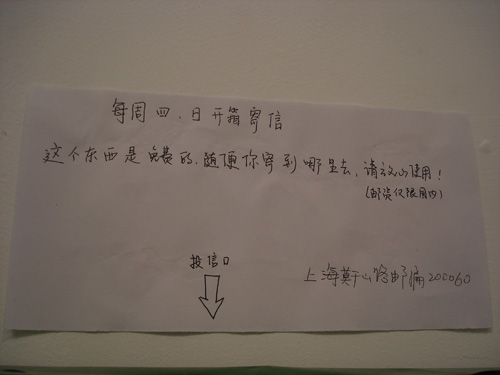 每周四、日开箱寄信
这个东西是免费的，随便你寄到哪里去，请放心使用！
（邮资仅限国内）
投信口
上海莫干山路邮编200060